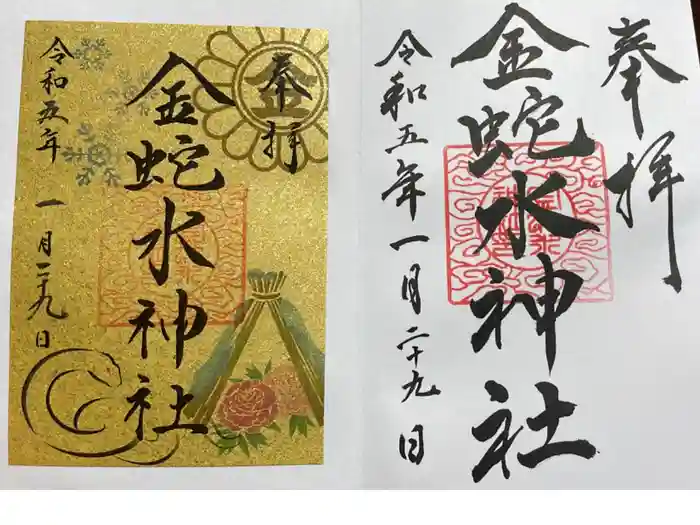 奉拝
金蛇水神社
令和五年 一月二九日
金
奉拝
金蛇水神社
令和五年一月二十九日